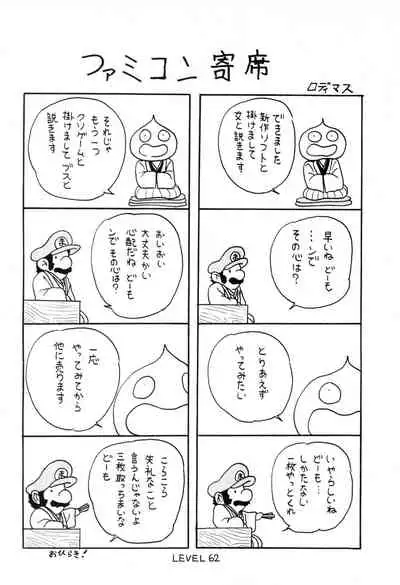 ファミコン寄席
ロディマス
できました
新作ソフトと
掛けまして
文と説きます
早いね どーも
・・・ンで
その心は?
とりあえず
やってみたい
いやらしいね
どーも…
しかたない
一枚やっとくれ
それじゃ
もう一つ
クソゲームと
掛けまして ブスと
説きます
おいおい
大丈夫かい
心配だね どーも
ンで その心は?
一応
やってみてから
他に売ります
こらこら
失礼なこと
言うんじゃないよ
三枚取っちまいな
どーも
おひらき!
LEVEL 62